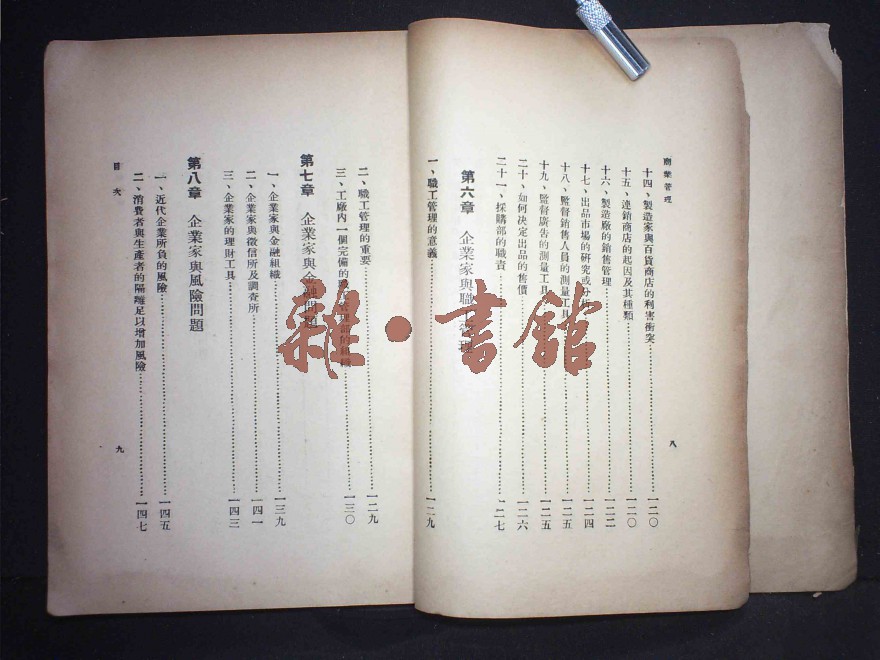 商業管理
十四、製造家與百貨商店的利害衝突 一二〇
十五、連銷商店的起因及其種類 一二〇
十六、製造廠的銷售管理 一二二
十七、出品市場的研究或分析 一二四
十八、監督銷售人員的測量工具 一二五
十九、監督廣告的測量工具 一二五
二十、如何決定出品的售價 一二六
二十一、採購部的職責 一二七
第六章 企業家與職工管理
一、職工管理的意義 一二九
八
二、職工管理的重要 一二九
三、工廠內一個完備的職工管理部的組織 一三〇
第七章 企業家與金融問題
一、企業家與金融組織 一三九
二、企業家與徵信所及調查所 一四一
三、企業家的理財工具 一四三
第八章 企業家與風險問題
一、近代企業所負的風險 一四五
二、消費者與生產者的隔離足以增加風險 一四七
目次
九
雜·書館